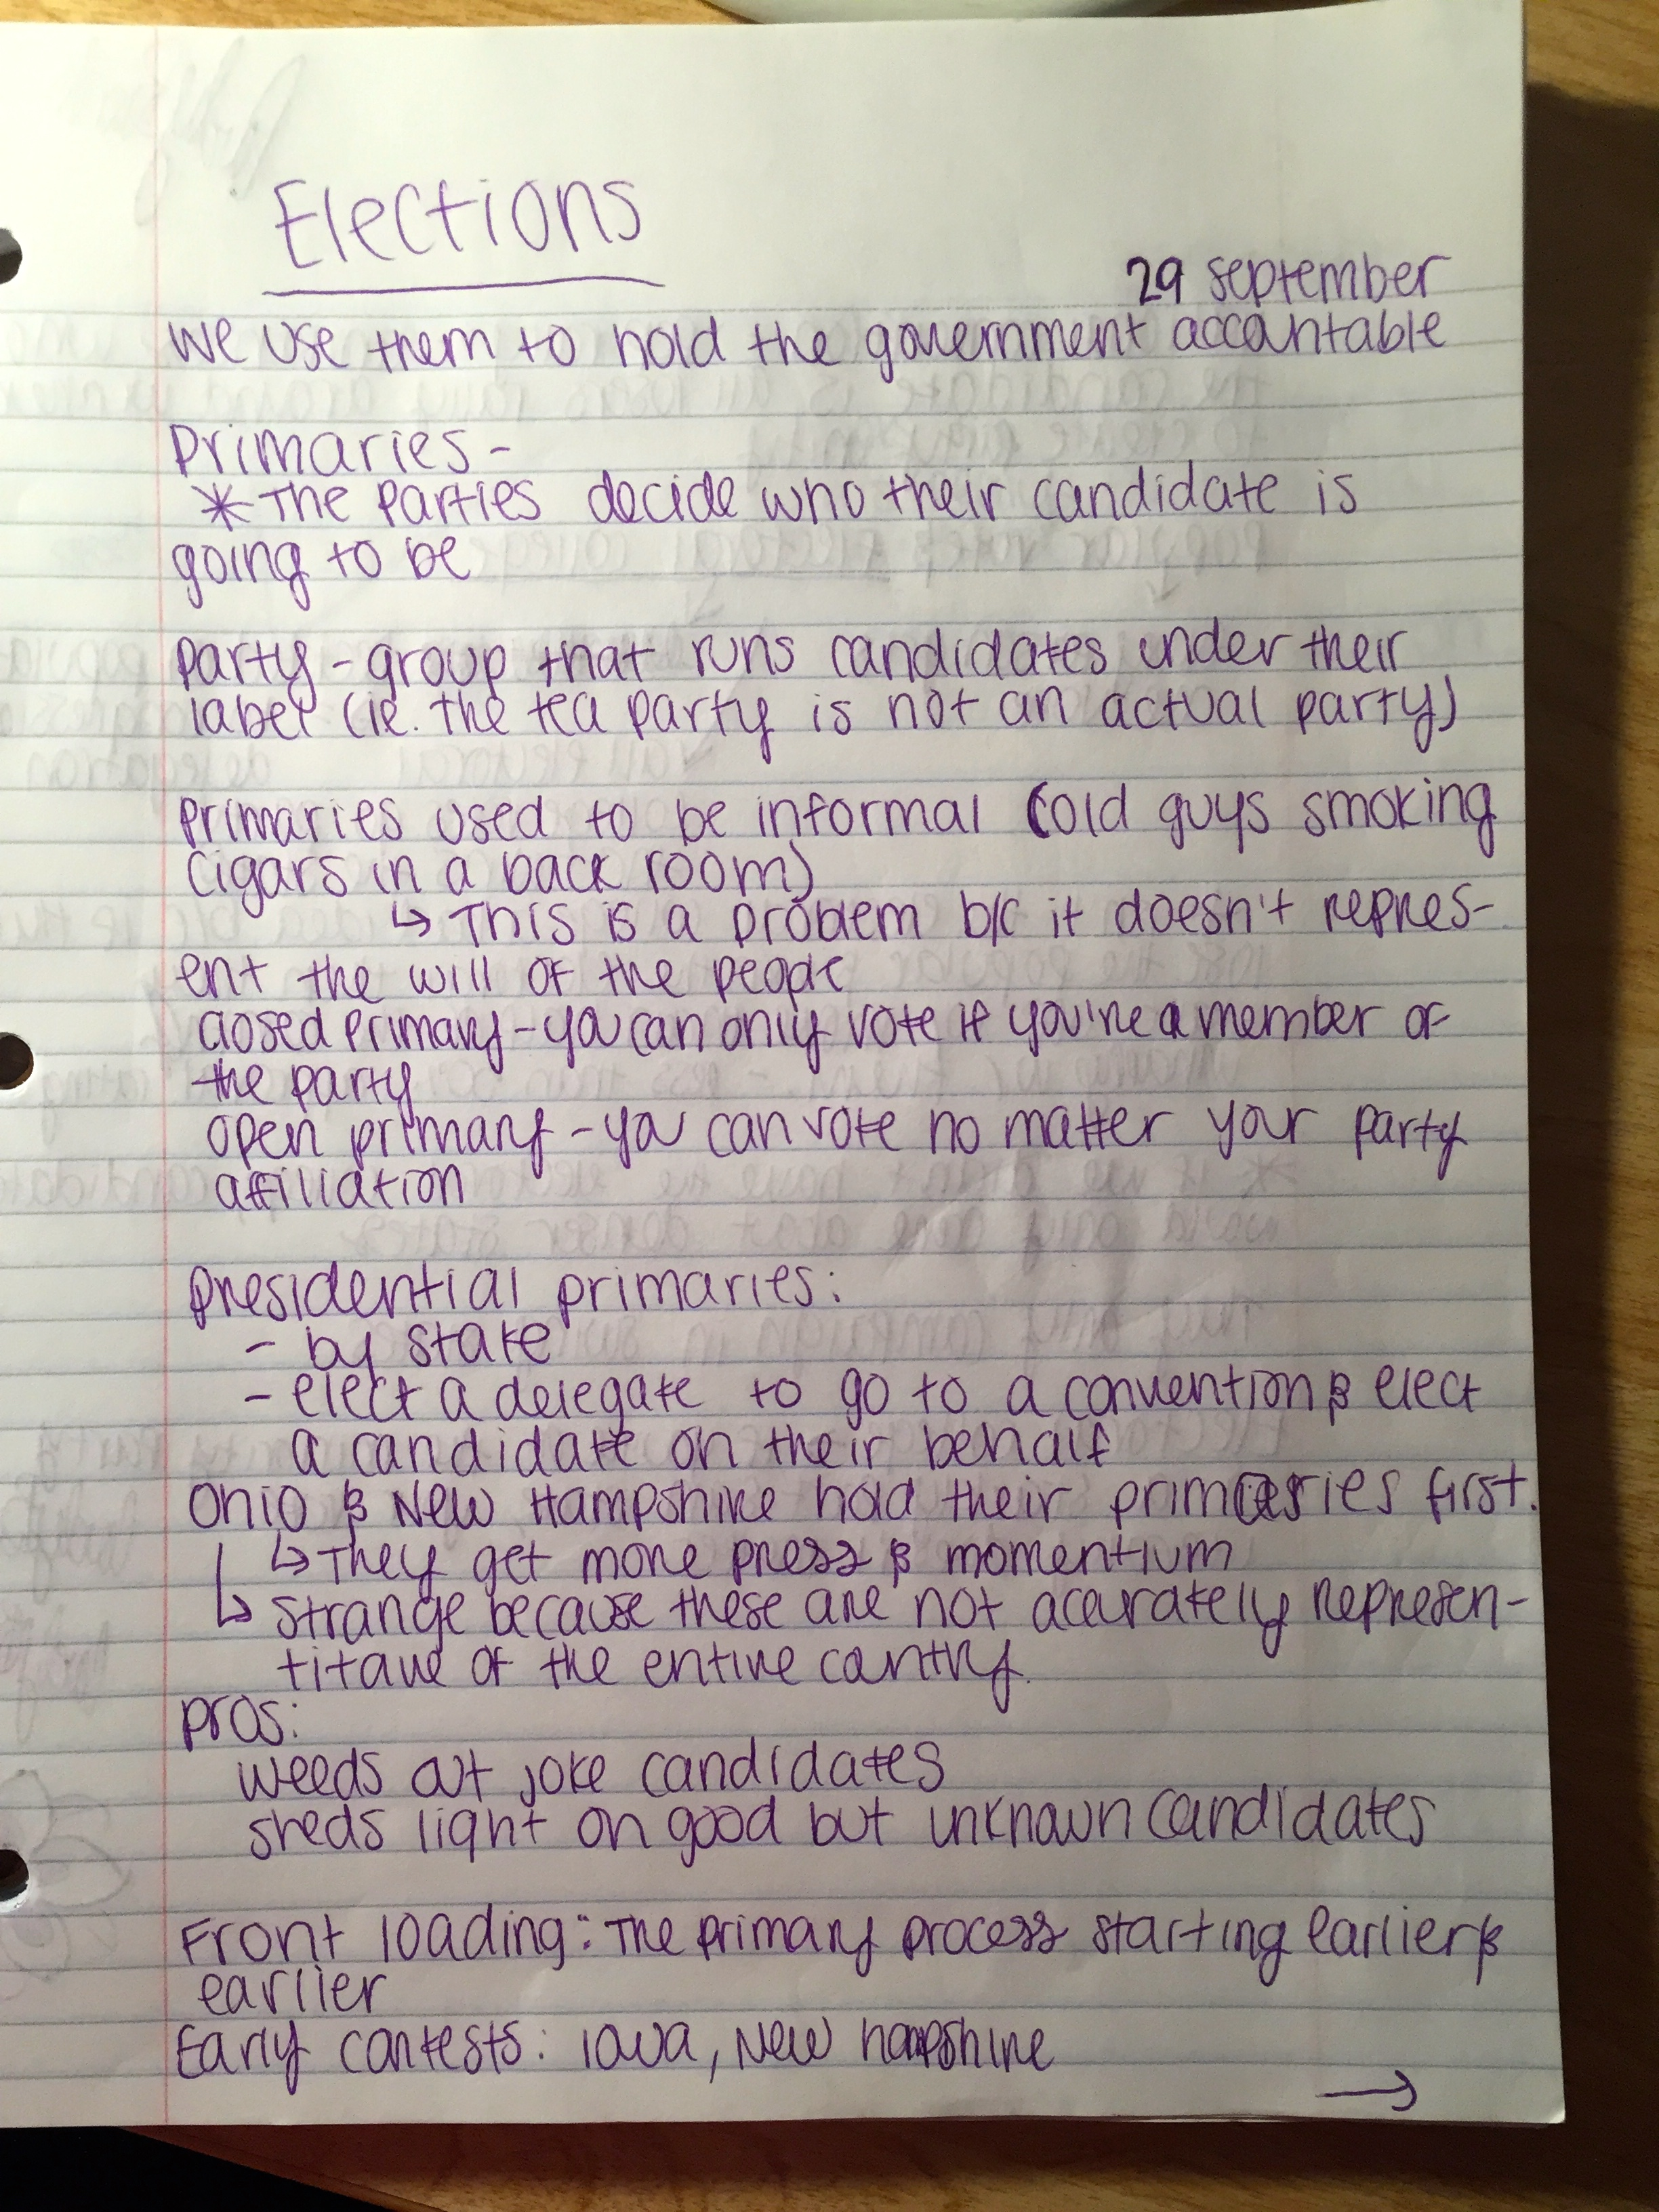 Elections
29 september
we use them to hold the government accountable
Primaries-
* The parties decide who their candidate is
going to be
party - group that runs candidates under their
label (ie. the tea party is not an actual party)
primaries used to be informal (old guys smoking
cigars in a back room)
↳ This is a problem b/c it doesn't repres-
ent the will of the people
closed primary - you can only vote if you're a member of
the party
open primary - you can vote no matter your party
affiliation
presidential primaries:
- by state
- elect a delegate to go to a convention & elect
a candidate on their behalf
Ohio & New Hampshire hold their primaries first.
↳ They get more press & momentium
↳ strange because these are not accurately represen-
titave of the entire country.
pros:
weeds out joke candidates
sheds light on good but unknown candidates
Front loading: The primary process starting earlier &
earlier
Early contests: iowa, New hampshire
→